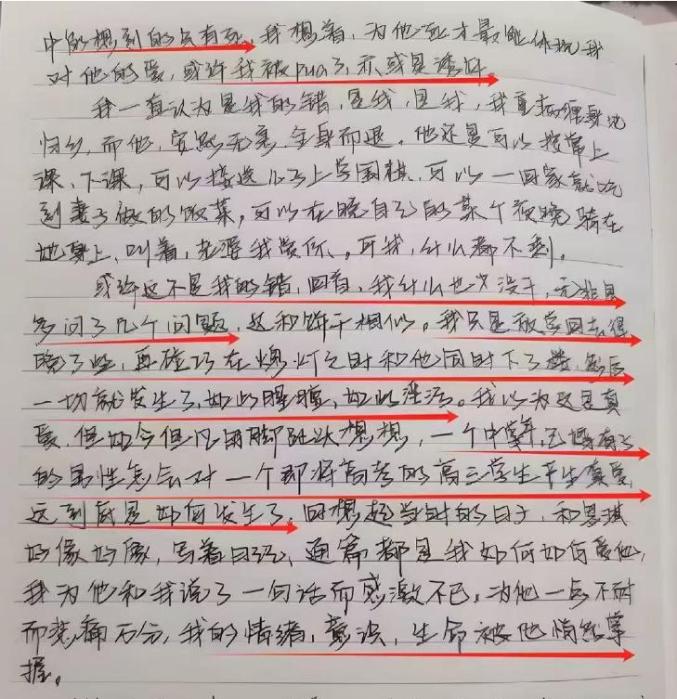 中的想到的只有死,我想着,为他死才最能体现我
对他的爱,或许我被pua了,亦或是诱奸。
我一直认为是我的错,是我,是我,我重抑缠身儿
归乡,而他,安然无恙,全身而退。他还是可以按常上
课,下课,可以接送儿子上学围棋,可以一回家就吃
到妻子做的饭菜,可以在晚自己的某个夜晚骑在
她身上,叫着,老婆我爱你、。可我,什么都不剩。
或许这不是我的错,回看,我什么也没干,无非是
多问了几个问题,这和饼干相似。我只是放学回去得
晚了些,再碰巧在熄灯之时和他同时下了楼,然后
一切就发生了,如此朦胧,如此
。我以为这是真
爱,但如今但凡用脚趾头想想,一个中年,已婚有子
的男性怎会对一个即将高考的高三学生产生真爱,
这到底是如何发生了。回想起当时的日子,和思琪
好像好像,写着日记,通篇都是我如何如何爱他,
我为他和我说了一句话而感激不已,为他一点不耐
而悲痛万分,我的情绪,意识,生命被他悄然掌
握。